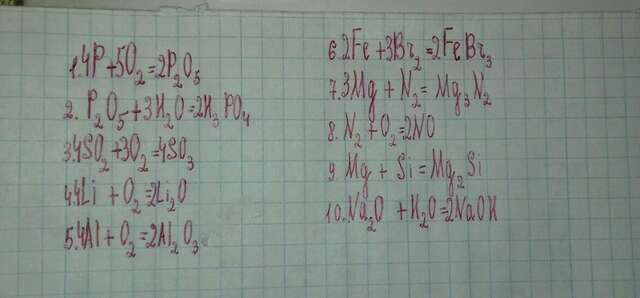 1.4P+5O₂=2P₂O₅
2. P₂O₅+3H₂O=2H₃PO₄
3.4SO₂+3O₂=4SO₃
4.4Li + O₂=2Li₂O
5.4Al+O₂=2Al₂O₃
6.2Fe+3Br₂=2FeBr₃
7.3Mg+N₂=Mg₃N₂
8.N₂+O₂=2NO
9. Mg+Si=Mg₂Si
10.Na₂O+H₂O=2NaOH